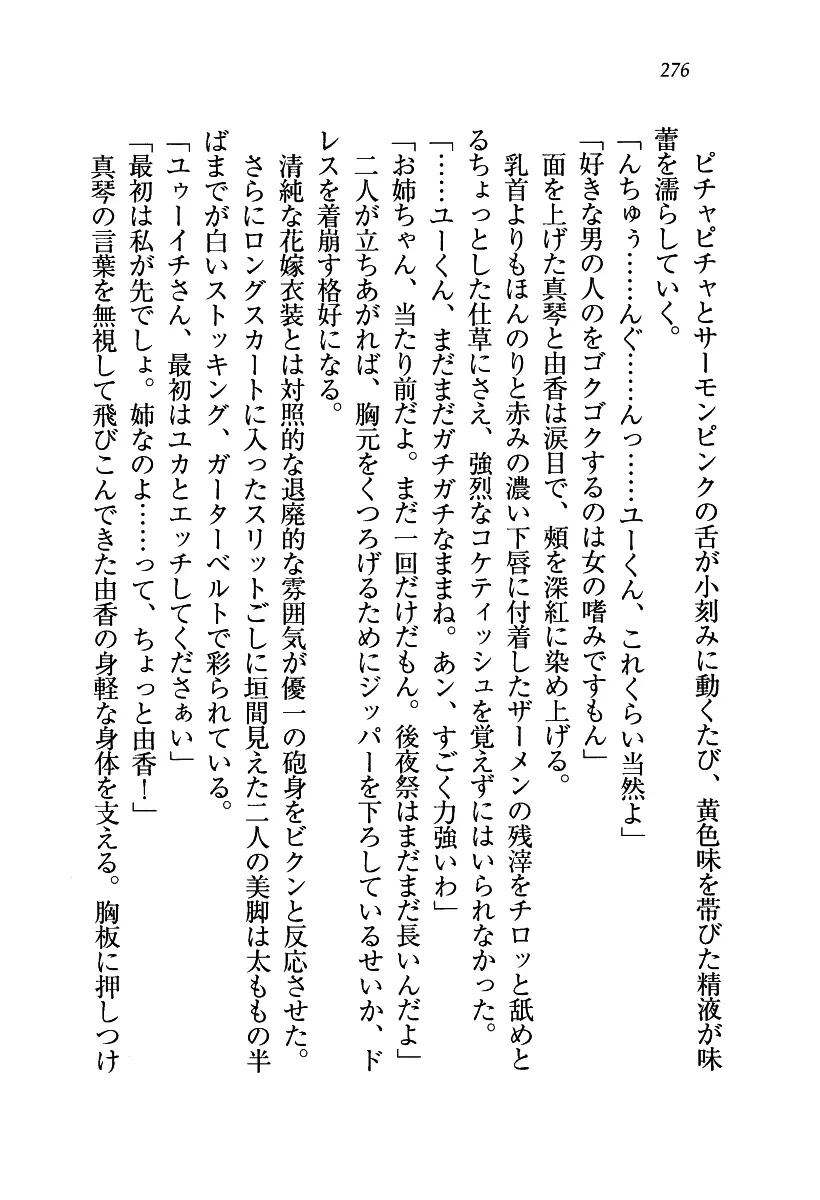 276
ピチャピチャとサーモンピンクの舌が小刻みに動くたび、黄色味を帯びた精液が味
蕾を濡らしていく。
「んちゅぅ……んぐ……んっ……ユーくん、これくらい当然よ」
「好きな男の人のをゴクゴクするのは女の嗜みですもん」
面を上げた真琴と由香は涙目で、頰を深紅に染め上げる。
乳首よりもほんのりと赤みの濃い下唇に付着したザーメンの残滓をチロッと舐めと
るちょっとした仕草にさえ、強烈なコケティッシュを覚えずにはいられなかった。
「……ユーくん、まだまだガチガチなままね。あン、すごく力強いわ」
「お姉ちゃん、当たり前だよ。まだ一回だけだもん。後夜祭はまだまだ長いんだよ」
二人が立ちあがれば、胸元をくつろげるためにジッパーを下ろしているせいか、ド
レスを着崩す格好になる。
清純な花嫁衣装とは対照的な退廃的な雰囲気が優一の砲身をビクンと反応させた。
さらにロングスカートに入ったスリットごしに垣間見えた二人の美脚は太ももの半
ばまでが白いストッキング、ガーターベルトで彩られている。
「ユゥーイチさん、最初はユカとエッチしてくださぁい」
「最初は私が先でしょ。姉なのよ……って、ちょっと由香！」
真琴の言葉を無視して飛びこんできた由香の身軽な身体を支える。胸板に押しつけ